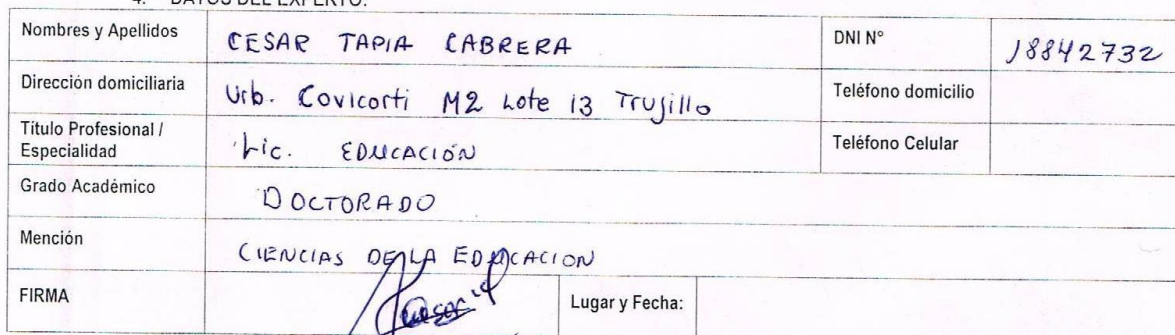 4. DATOS DEL EXPERTO:
Nombres y Apellidos CESAR TAPIA CABRERA DNI N° 18842732
Dirección domiciliaria Urb. Covicorti M2 Lote 13 Trujillo Teléfono domicilio
Título Profesional / Especialidad Lic. EDUCACIÓN Teléfono Celular
Grado Académico DOCTORADO
Mención CIENCIAS DE LA EDUCACION
FIRMA Lugar y Fecha: